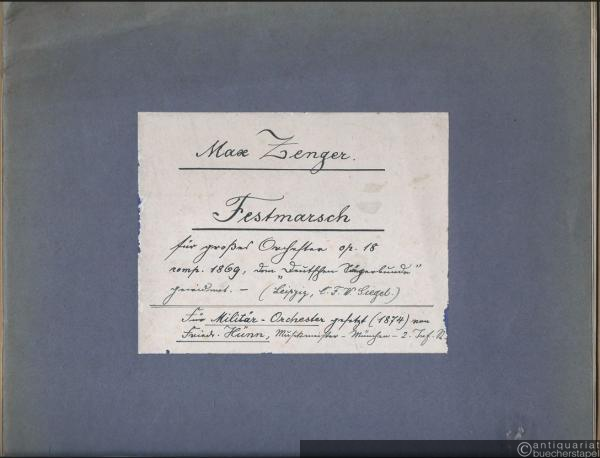 Max Zenger.
Festmarsch
für großes Orchester op. 18
komp. 1869, dem "Deutschen Sängerbunde"
gewidmet. — (Leipzig, C. F. W. Siegel.)
Für Militär-Orchester gesetzt (1874) von
Friedr. Hünn, Musikmeister - München - 2. Inf. R.
antiquariat
buecherstapel